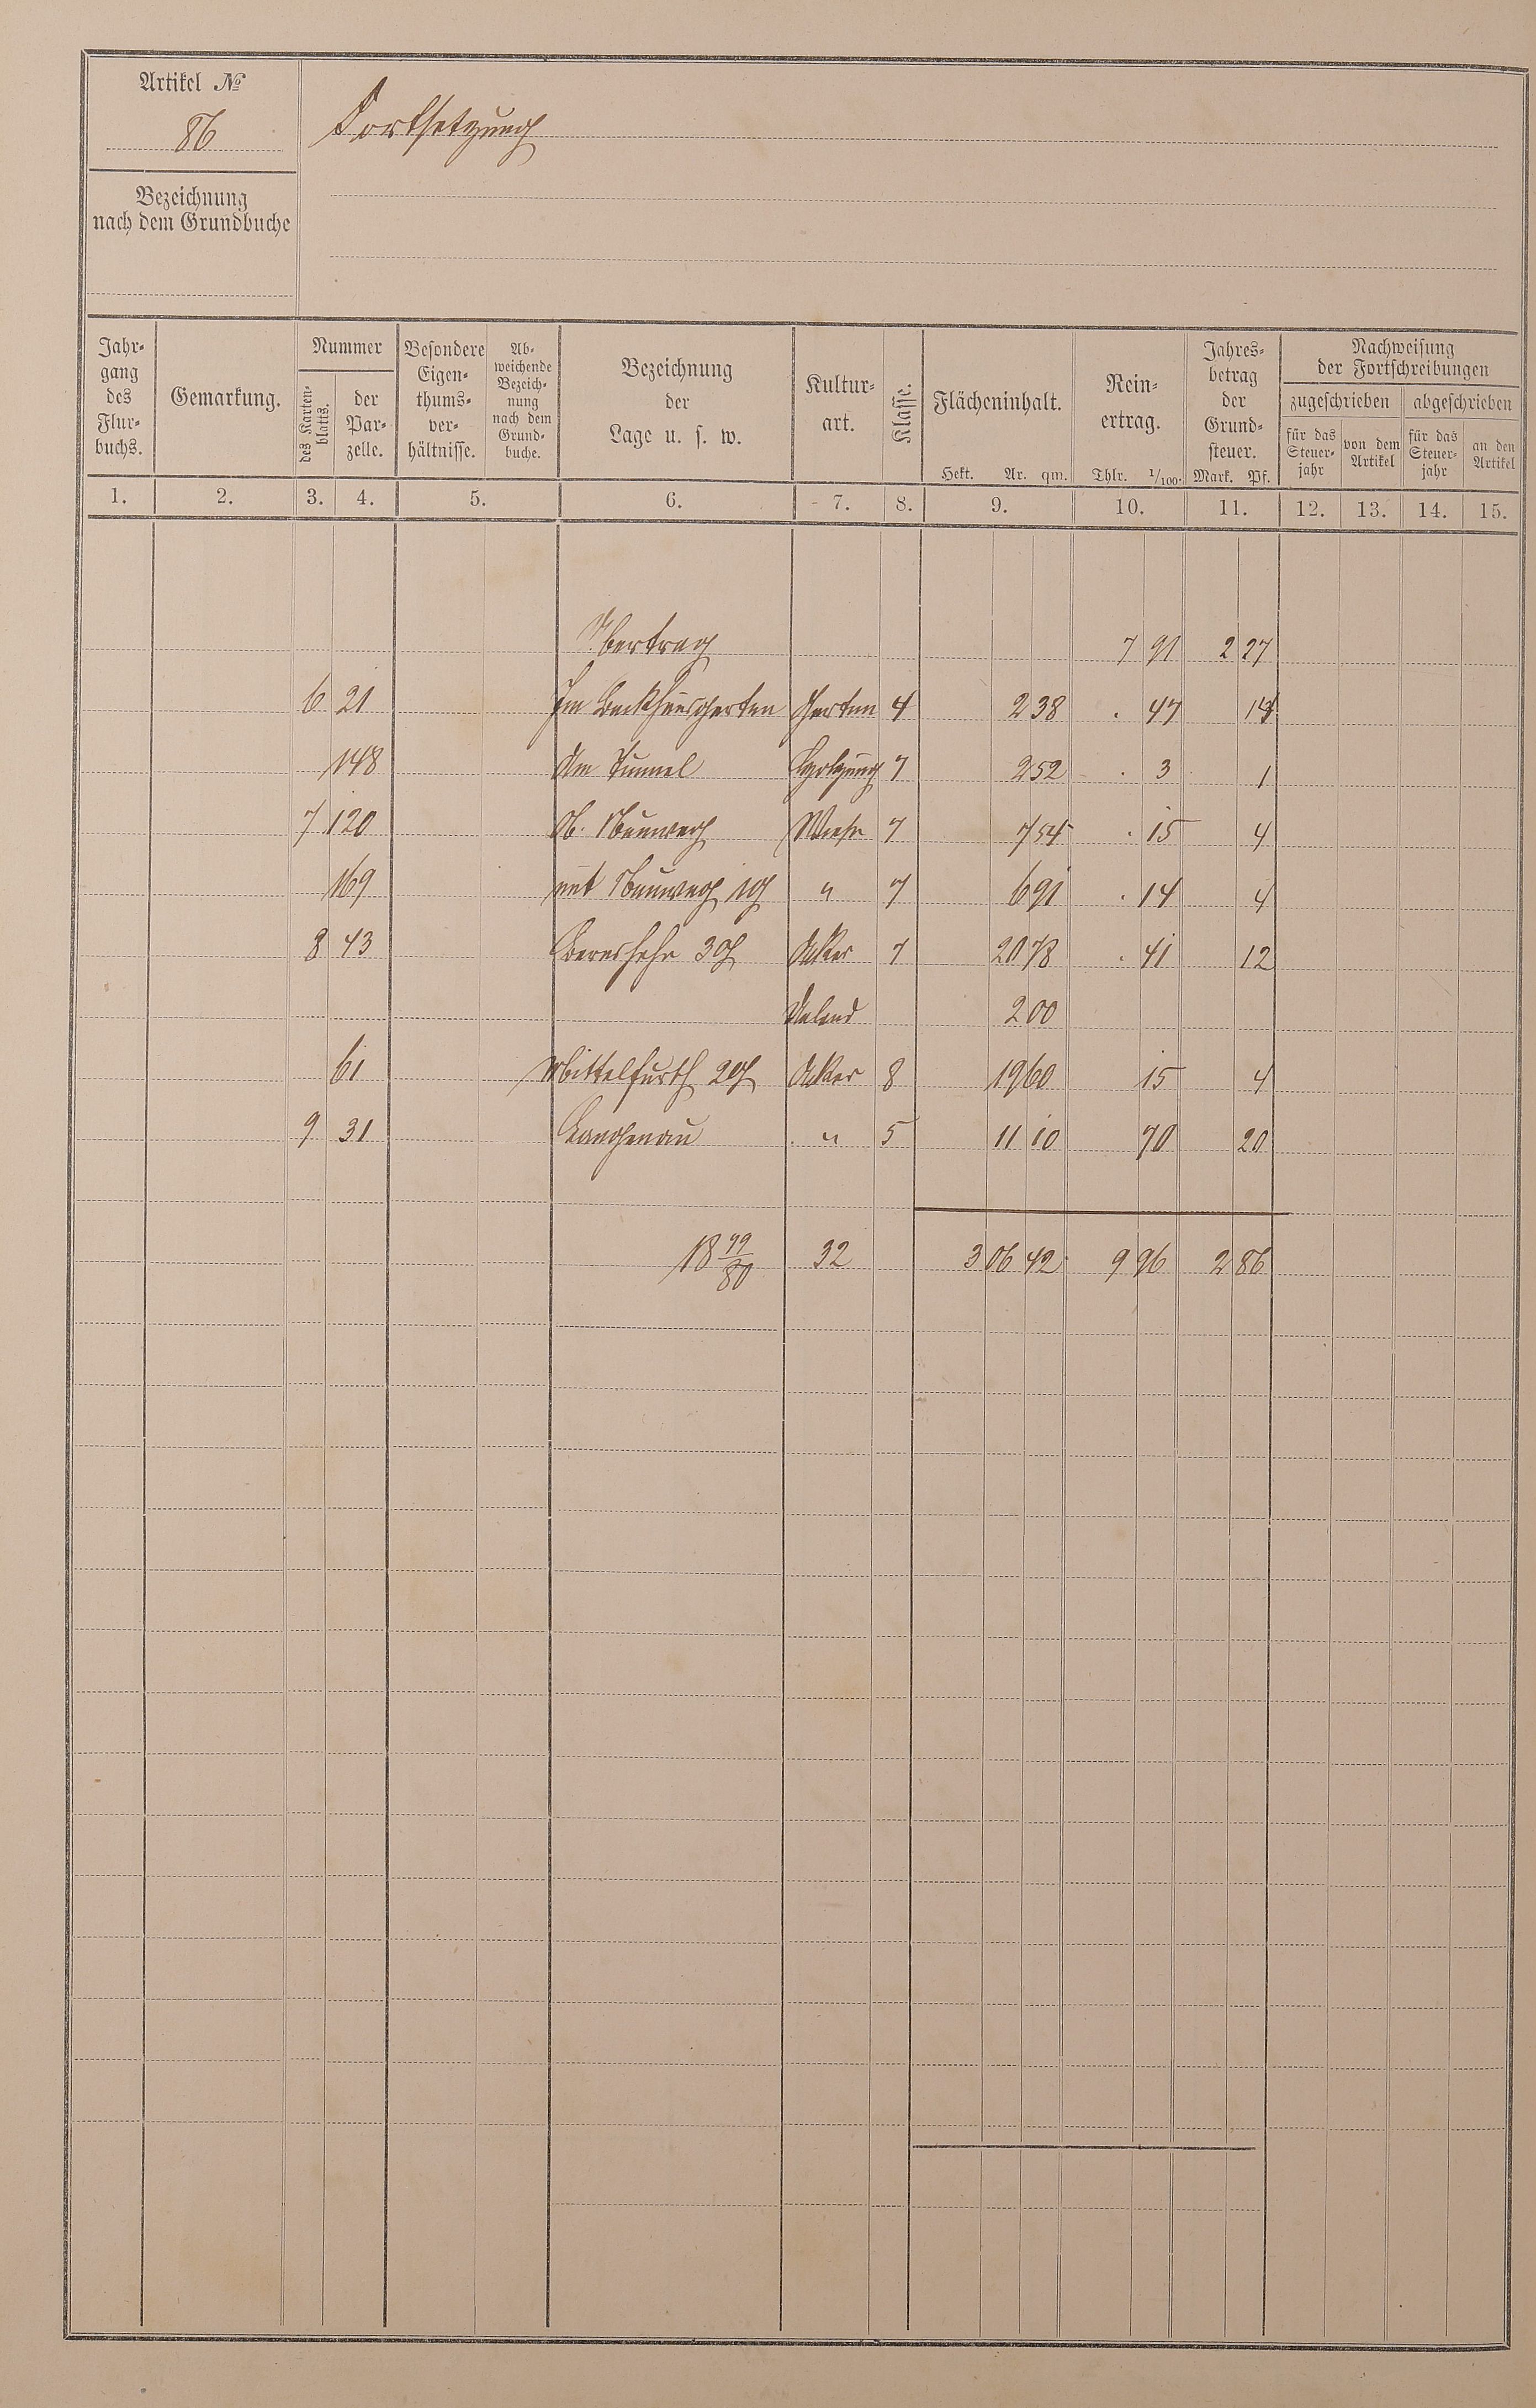 Artikel №
86
Fortsetzung
Bezeichnung
nach dem Grundbuche
Jahr-
gang
des
Flur-
buchs.
Gemarkung.
Nummer
des Karten-
blatts.
der
Par-
zelle.
Besondere
Eigen-
thums-
ver-
hältnisse.
Ab-
weichende
Bezeich-
nung
nach dem
Grund-
buche.
Bezeichnung
der
Lage u. s. w.
Kultur-
art.
Klasse.
Flächeninhalt.
Hekt. Ar. qm.
Rein-
ertrag.
Thlr. 1/100.
Jahres-
betrag
der
Grund-
steuer.
Mark. Pf.
Nachweisung
der Fortschreibungen
zugeschrieben abgeschrieben
für das
Steuer-
jahr
von dem
Artikel
für das
Steuer-
jahr
an den
Artikel
1. 2. 3. 4. 5. 6. 7. 8. 9. 10. 11. 12. 13. 14. 15.
Übertrag 7 91 2 27
6 21 Im Backhausgarten Garten 4 2 38 . 47
148 Am Tunnel Holzung 7 2 52 . 3 1
7 120 Ob. Neuweg Wiese 7 7 54 . 15 4
169 unt Neuweg " 7 6 91 . 14 4
8 43 Acker 7 20 78 . 41 12
Unland 2 00
61 Mittelfurth Acker 8 19 60 15 4
9 31 Langenau " 5 11 10 70 20
18 79/80 32 3 06 42 9 96 2 86